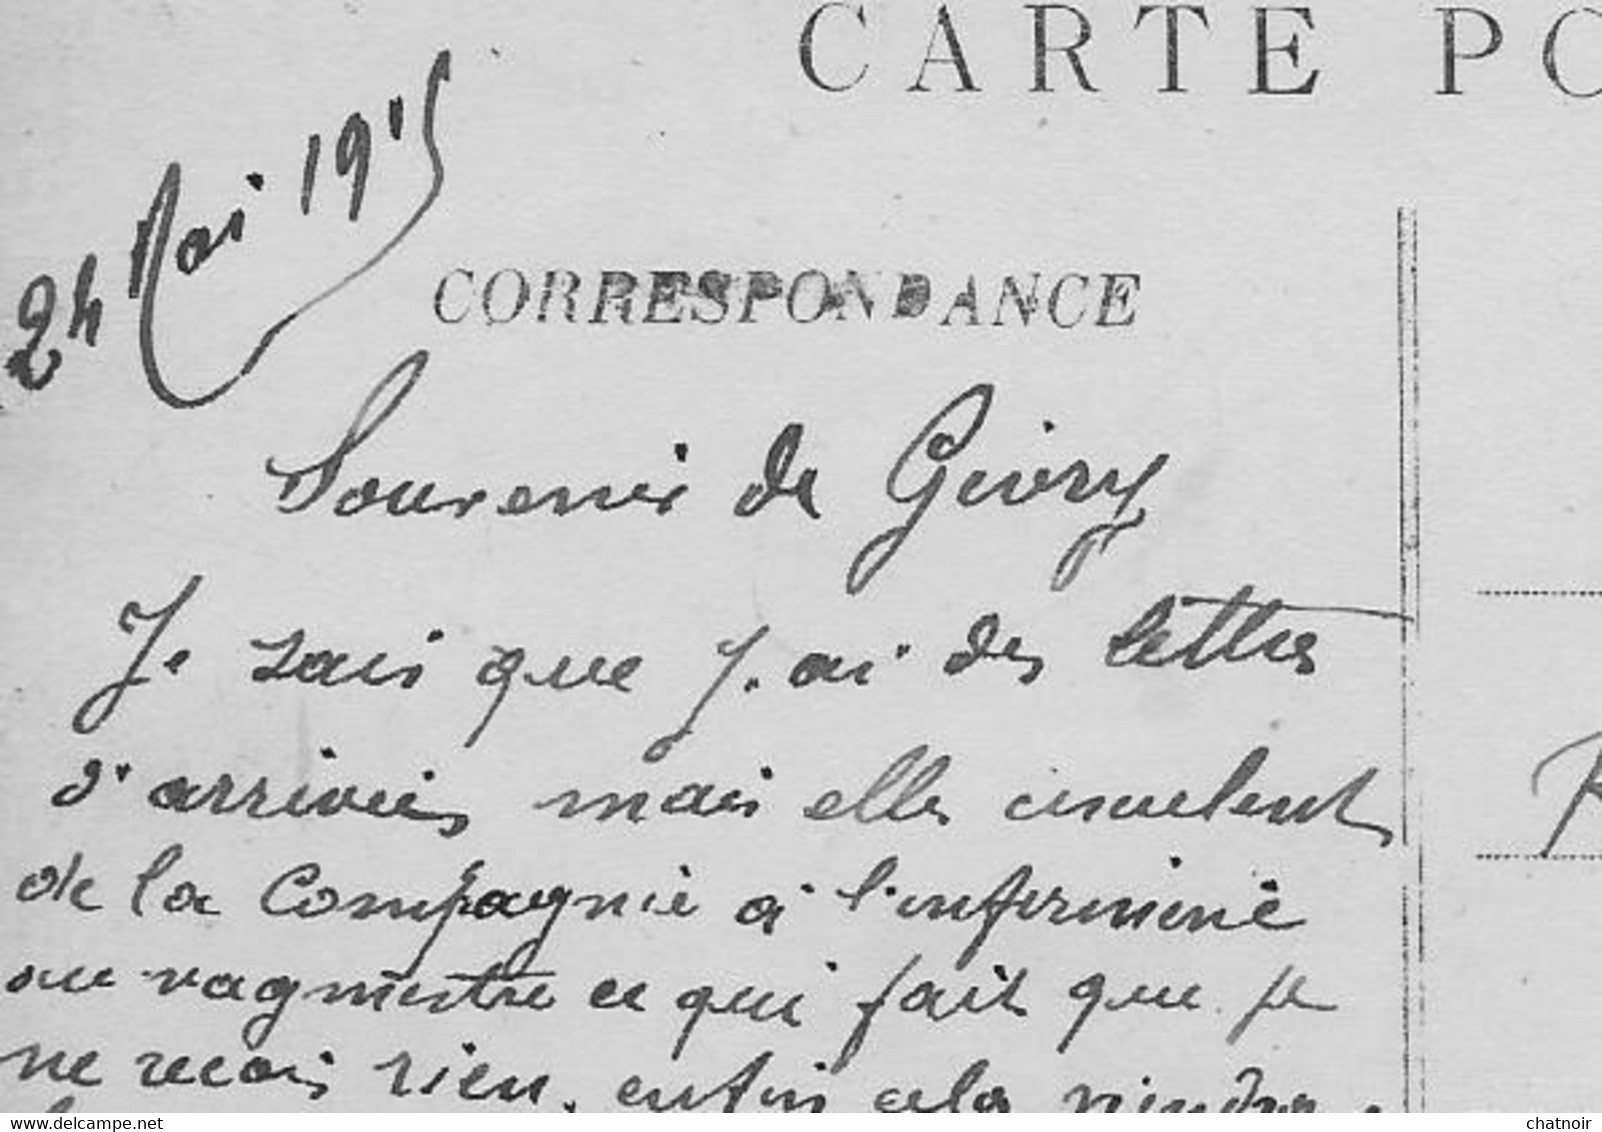 CARTE PO
24 Mai 1915
CORRESPONDANCE
Souvenir de Givry
Je sais que j'ai des lettres
d'arrivées mais elles circulent
de la Compagnie à l'infirmerie
au vagmestre ce qui fait que je
ne recois rien. enfin cela viendra
chatnoir